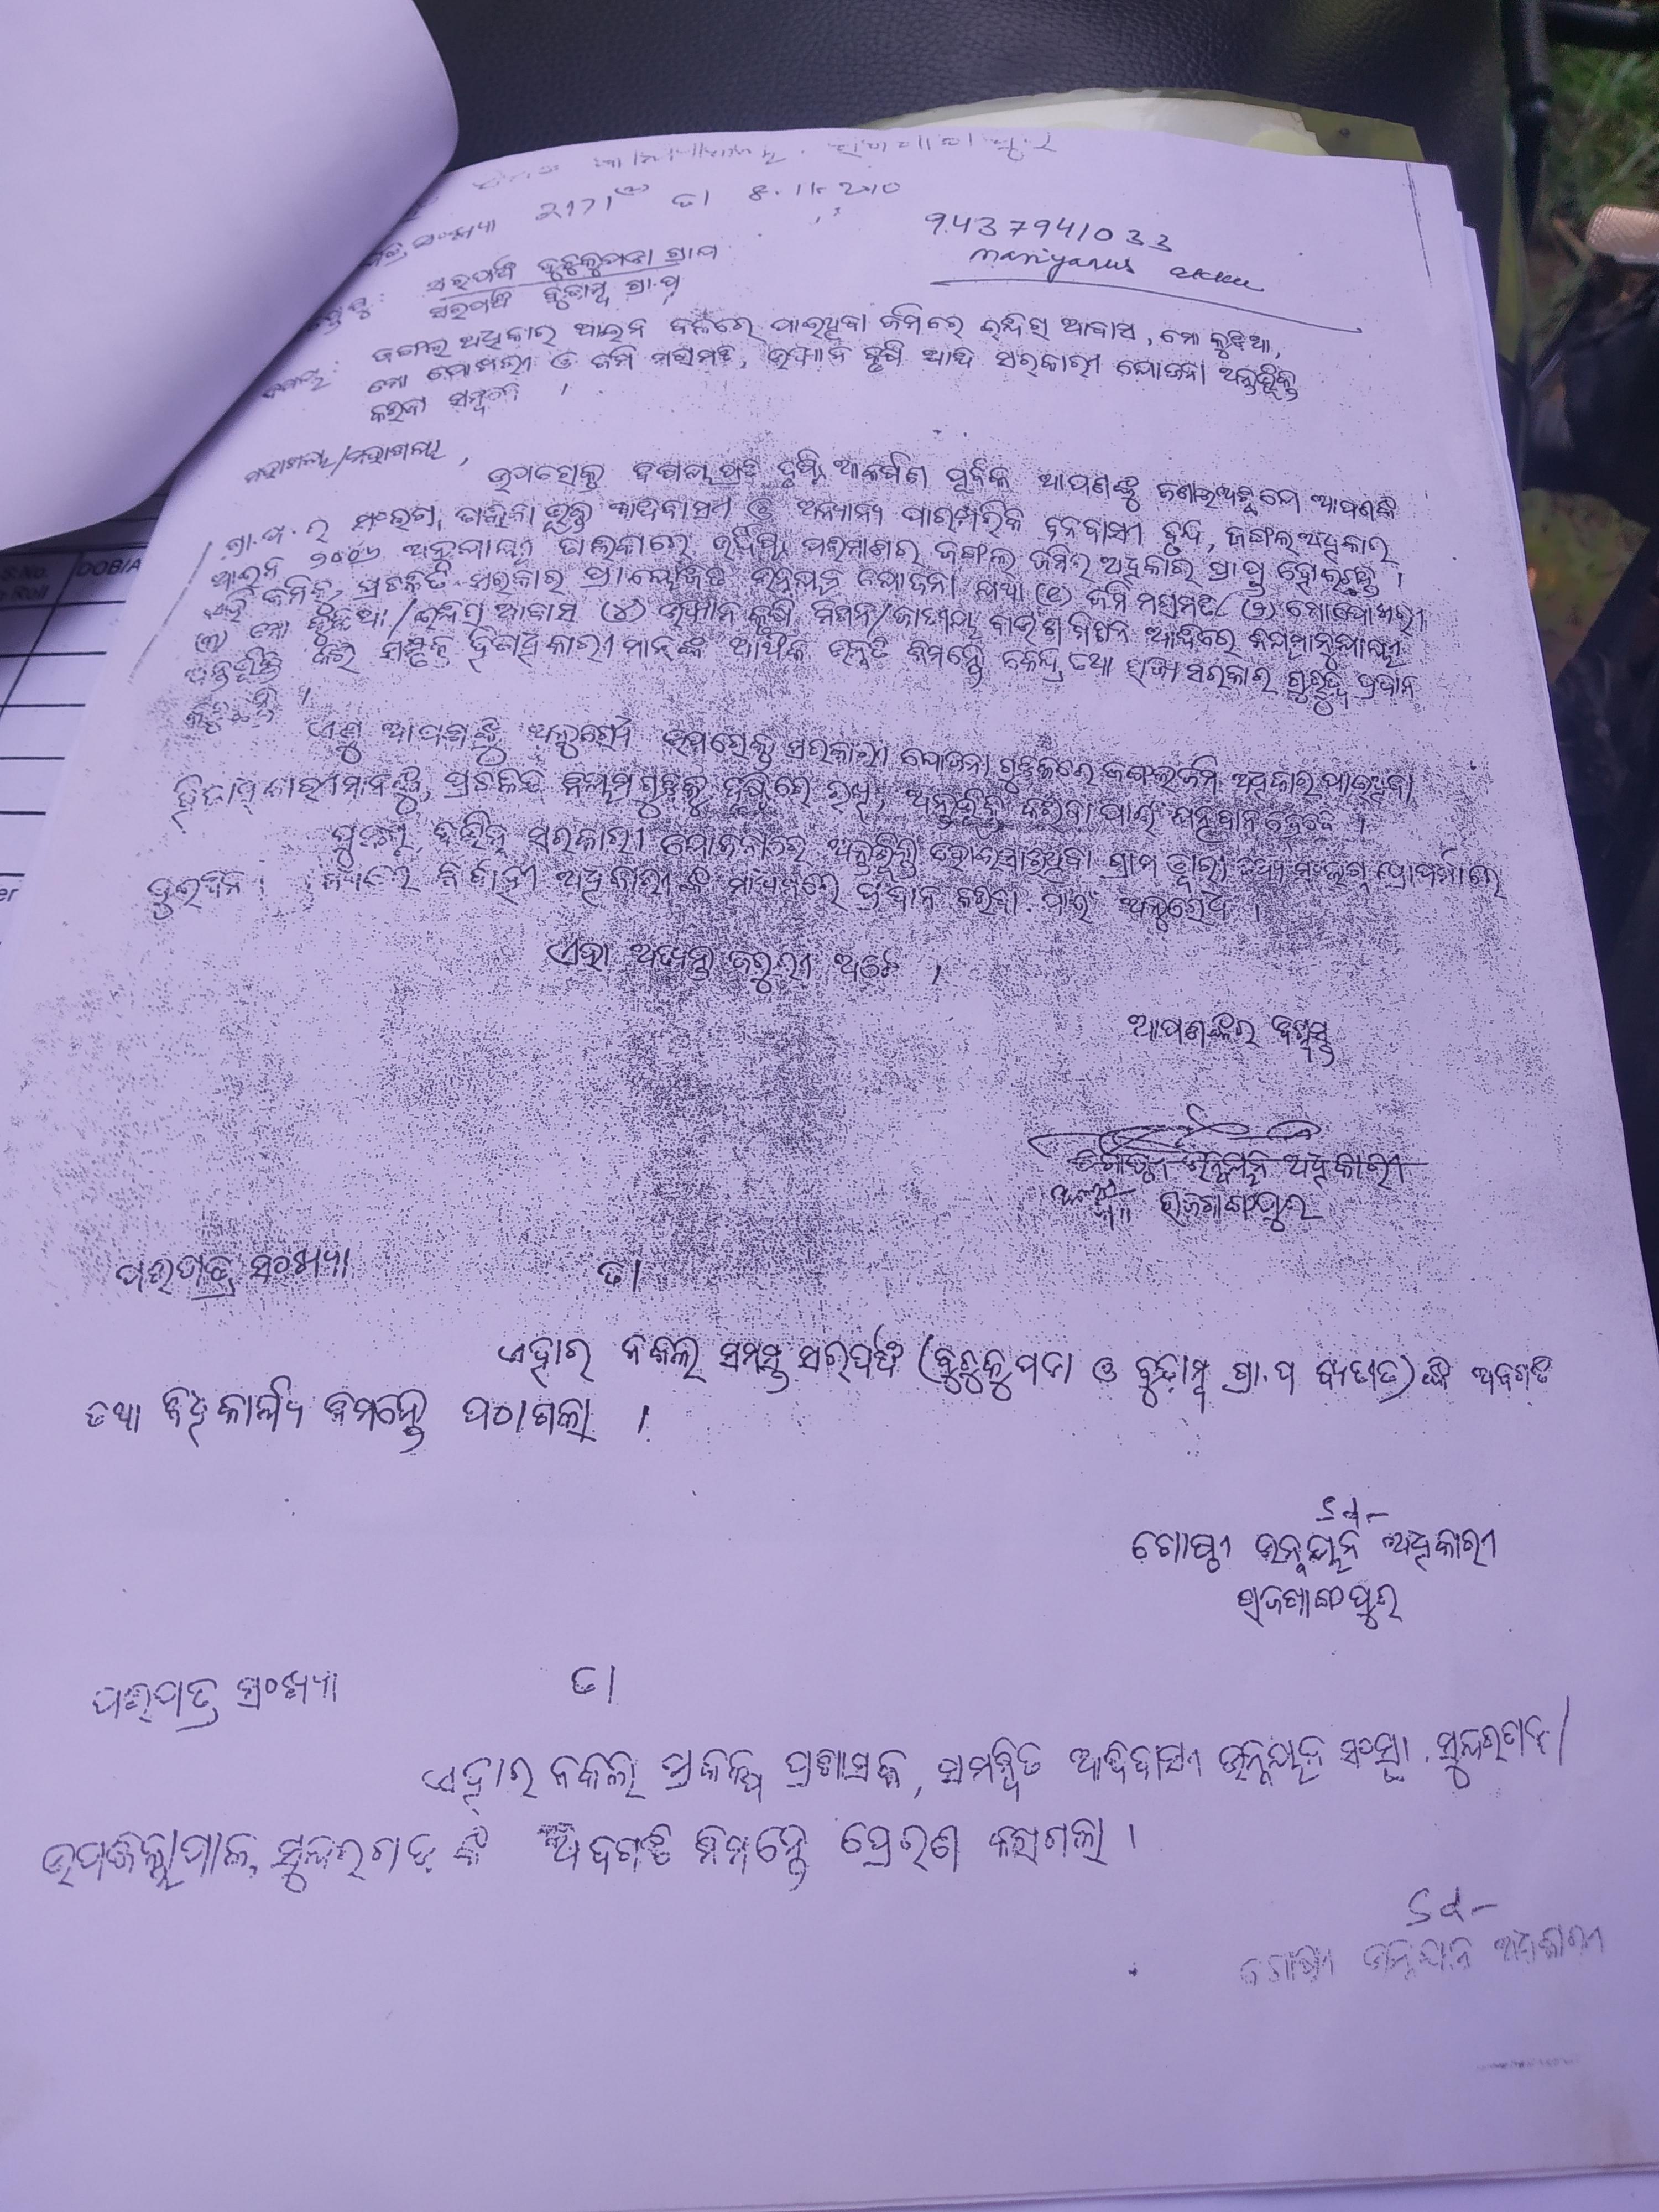 ସଂଖ୍ୟା 2171 ତା 8.11.2010
9437941033
ସରପଞ୍ଚ କୁଟୁକୁପଡା ଗ୍ରା.ପ
ସରପଞ୍ଚ ବୁଢାମ୍ବ ଗ୍ରା.ପ
ଜଙ୍ଗଲ ଅଧିକାର ଆଇନ ବଳରେ ପାଇଥିବା ଜମିରେ ଇନ୍ଦିରା ଆବାସ, ମୋ କୁଡିଆ,
ମୋ ପୋଖରୀ ଓ ଜମି ସମତଳ, ଉଦ୍ୟାନ କୃଷି ଆଦି ସରକାରୀ ଯୋଜନା ଅନ୍ତର୍ଭୁକ୍ତ
କରିବା ସମ୍ବନ୍ଧେ ।
ମହାଶୟ/ମହାଶୟା,
ଉପରୋକ୍ତ ବିଷୟ ପ୍ରତି ଦୃଷ୍ଟି ଆକର୍ଷଣ ପୂର୍ବକ ଆପଣଙ୍କୁ ଜଣାଇଅଛୁ ଯେ ଆପଣଙ୍କ
ଗ୍ରା.ପ. ର ସଂଲଗ୍ନ ତାଲିକା ଭୁକ୍ତ ଆଦିବାସୀ ଓ ଅନ୍ୟାନ୍ୟ ପାରମ୍ପରିକ ବନବାସୀ ବୃନ୍ଦ, ଜଙ୍ଗଲ ଅଧିକାର
ଆଇନ ୨୦୦୬ ଅନୁଯାୟୀ ତାଲିକାରେ ଉଦ୍ଦିଷ୍ଟ ପରିମାଣର ଜଙ୍ଗଲ ଜମିର ଅଧିକାର ପ୍ରାପ୍ତ ହୋଇଛନ୍ତି ।
ଏହି ଜମିକୁ, ପ୍ରଚଳିତ ସରକାର ପ୍ରାୟୋଜିତ ଉନ୍ନୟନ ଯୋଜନା ଯଥା (୧) ଜମି ସମତଳ (୨) ମୋ ପୋଖରୀ
(୩) ମୋ କୁଡିଆ/ଇନ୍ଦିରା ଆବାସ (୪) ଉଦ୍ୟାନ କୃଷି ମିଶନ/ଜାତୀୟ ବାଉଁଶ ମିଶନ ଆଦିରେ ନିୟମାନୁଯାୟୀ
ଅନ୍ତର୍ଭୁକ୍ତ କରି ସମ୍ପୃକ୍ତ ହିତାଧିକାରୀମାନଙ୍କ ଆର୍ଥିକ ଉନ୍ନତି ନିମନ୍ତେ କେନ୍ଦ୍ର ତଥା ରାଜ୍ୟ ସରକାର ଗୁରୁତ୍ୱ ପ୍ରଦାନ
କରୁଛନ୍ତି ।
ଏଣୁ ଆପଣଙ୍କୁ ଅନୁରୋଧ ଉପରୋକ୍ତ ସରକାରୀ ଯୋଜନା ଗୁଡିକରେ ଜଙ୍ଗଲ ଜମି ଅଧିକାର ପାଇଥିବା
ହିତାଧିକାରୀମାନଙ୍କୁ, ପ୍ରଚଳିତ ନିୟମଗୁଡିକୁ ଦୃଷ୍ଟିରେ ରଖି, ଅନ୍ତର୍ଭୁକ୍ତ କରିବା ପାଇଁ ଯତ୍ନବାନ ହେବେ ।
ପୁନଶ୍ଚ, ବିଭିନ୍ନ ସରକାରୀ ଯୋଜନାରେ ଅନ୍ତର୍ଭୁକ୍ତ ହୋଇସାରିଥିବା ଗ୍ରାମ ୱାରୀ ତଥ୍ୟ ସଂଲଗ୍ନ ପ୍ରୋଫର୍ମାରେ
ନିର୍ବାହୀ ଅଧିକାରୀଙ୍କ ମାଧ୍ୟମରେ ପ୍ରଦାନ କରିବା ପାଇଁ ଅନୁରୋଧ ।
ଏହା ଅତ୍ୟନ୍ତ ଜରୁରୀ ଅଟେ ।
ଆପଣଙ୍କର ବିଶ୍ୱସ୍ତ
ଗୋଷ୍ଠୀ ଉନ୍ନୟନ ଅଧିକାରୀ
ରାଜଗାଙ୍ଗପୁର
ପରିପତ୍ର ସଂଖ୍ୟା ତା
ଏହାର ନକଲ ସମସ୍ତ ସରପଞ୍ଚ (କୁଟୁକୁପଡା ଓ ବୁଢାମ୍ବ ଗ୍ରା.ପ ବ୍ୟତୀତ)ଙ୍କ ଅବଗତି
ତଥା ବିହିତ କାର୍ଯ୍ୟ ନିମନ୍ତେ ପଠାଗଲା ।
Sd-
ଗୋଷ୍ଠୀ ଉନ୍ନୟନ ଅଧିକାରୀ
ରାଜଗାଙ୍ଗପୁର
ପରିପତ୍ର ସଂଖ୍ୟା ତା
ଏହାର ନକଲ ପ୍ରକଳ୍ପ ପ୍ରଶାସକ, ସମନ୍ୱିତ ଆଦିବାସୀ ଉନ୍ନୟନ ସଂସ୍ଥା, ସୁନ୍ଦରଗଡ/
ଉପଜିଲ୍ଲାପାଳ, ସୁନ୍ଦରଗଡ ଙ୍କ ଅବଗତି ନିମନ୍ତେ ପ୍ରେରଣ କରାଗଲା ।
Sd-
ଗୋଷ୍ଠୀ ଉନ୍ନୟନ ଅଧିକାରୀ